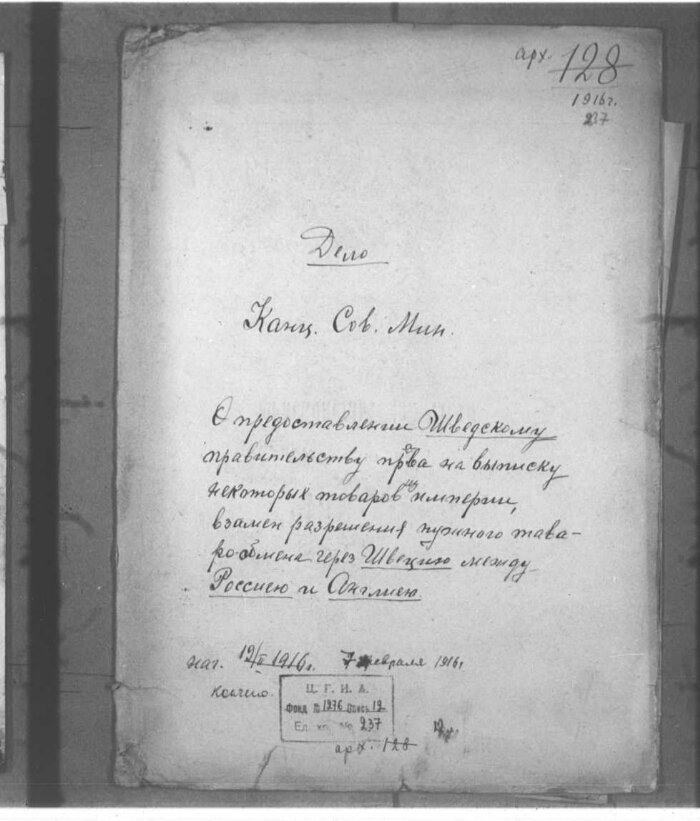 арх. 128
1916 г.
237
Дело
Канц. Сов. Мин.
О предоставлении Шведскому
правительству права на выписку
некоторых товаров из империи,
взамен разрешения нужного това-
рообмена через Швецию между
Россиею и Англиею.
нач. 19/II 1916 г. 7 февраля 1916 г
кончено.
Ц. Г. И. А.
Фонд № 1276 Опись 12
Ед. хр. № 237
арх. 128